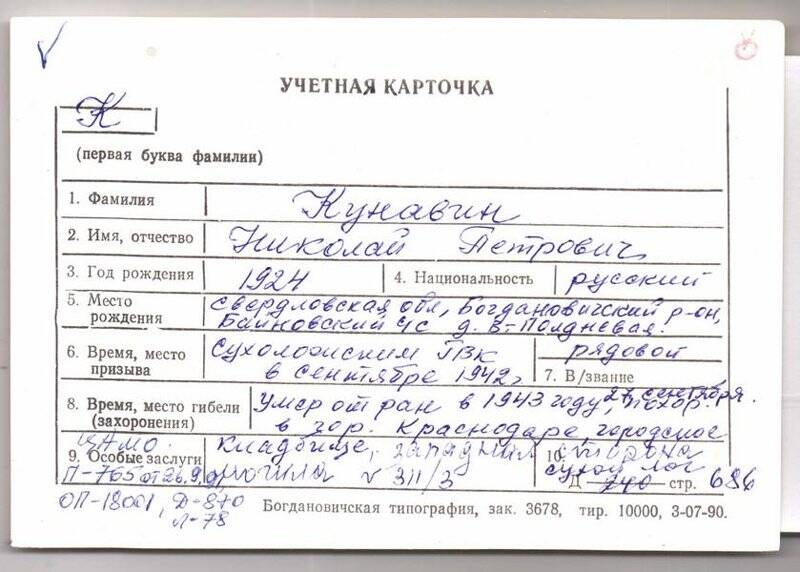 УЧЕТНАЯ КАРТОЧКА
К
(первая буква фамилии)
1. Фамилия Кунавин
2. Имя, отчество Николай Петрович
3. Год рождения 1924 4. Национальность русский
5. Место рождения Свердловская обл, Богдановичский р-он,
Байновский с/с д. В-Полдневая.
6. Время, место призыва Сухоложским ГВК
в сентябре 1942г
7. В/звание рядовой
8. Время, место гибели (захоронения) Умер от ран в 1943 году, 27 сентября. похор.
в гор. Краснодаре, городское
кладбище, западная сторона
могила № 311/3
9. Особые заслуги ЦАМО.
П-765 от 26.9.
ОП-18001, Д-870
Л-78
10. Сухой Лог
Д 740 стр. 686
Богдановичская типография, зак. 3678, тир. 10000, 3-07-90.